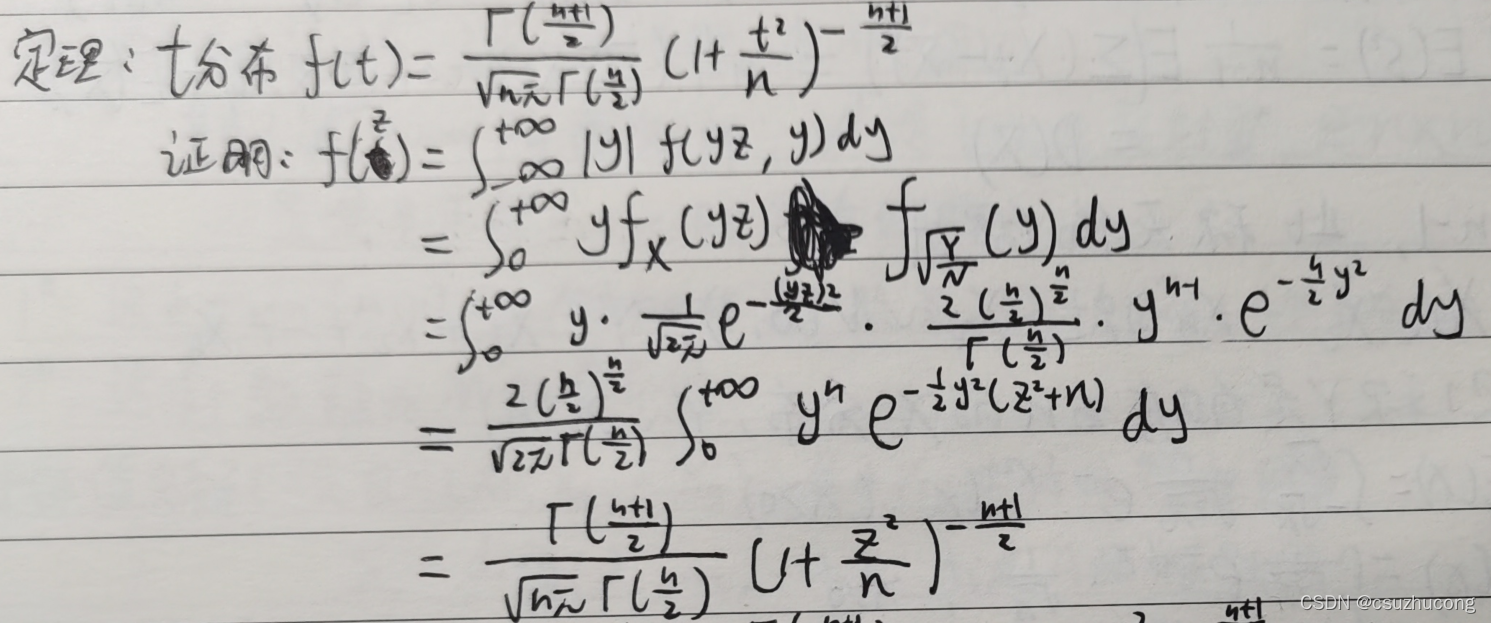 定理：t分布 f(t) = \frac{Γ(\frac{n+1}{2})}{\sqrt{nπ}Γ(\frac{n}{2})} (1+\frac{t^2}{n})^{-\frac{n+1}{2}}
证明：f(z) = ∫_{-∞}^{+∞} |y| f(yz, y) dy
= ∫_0^{+∞} y f_X(yz) f_{\sqrt{\frac{Y}{N}}}(y) dy
= ∫_0^{+∞} y · \frac{1}{\sqrt{2π}} e^{-\frac{(yz)^2}{2}} · \frac{2(\frac{n}{2})^{\frac{n}{2}}}{Γ(\frac{n}{2})} · y^{n-1} · e^{-\frac{n}{2}y^2} dy
= \frac{2(\frac{n}{2})^{\frac{n}{2}}}{\sqrt{2π}Γ(\frac{n}{2})} ∫_0^{+∞} y^n e^{-\frac{1}{2}y^2(z^2+n)} dy
= \frac{Γ(\frac{n+1}{2})}{\sqrt{nπ}Γ(\frac{n}{2})} (1+\frac{z^2}{n})^{-\frac{n+1}{2}}
CSDN @csuzhucong